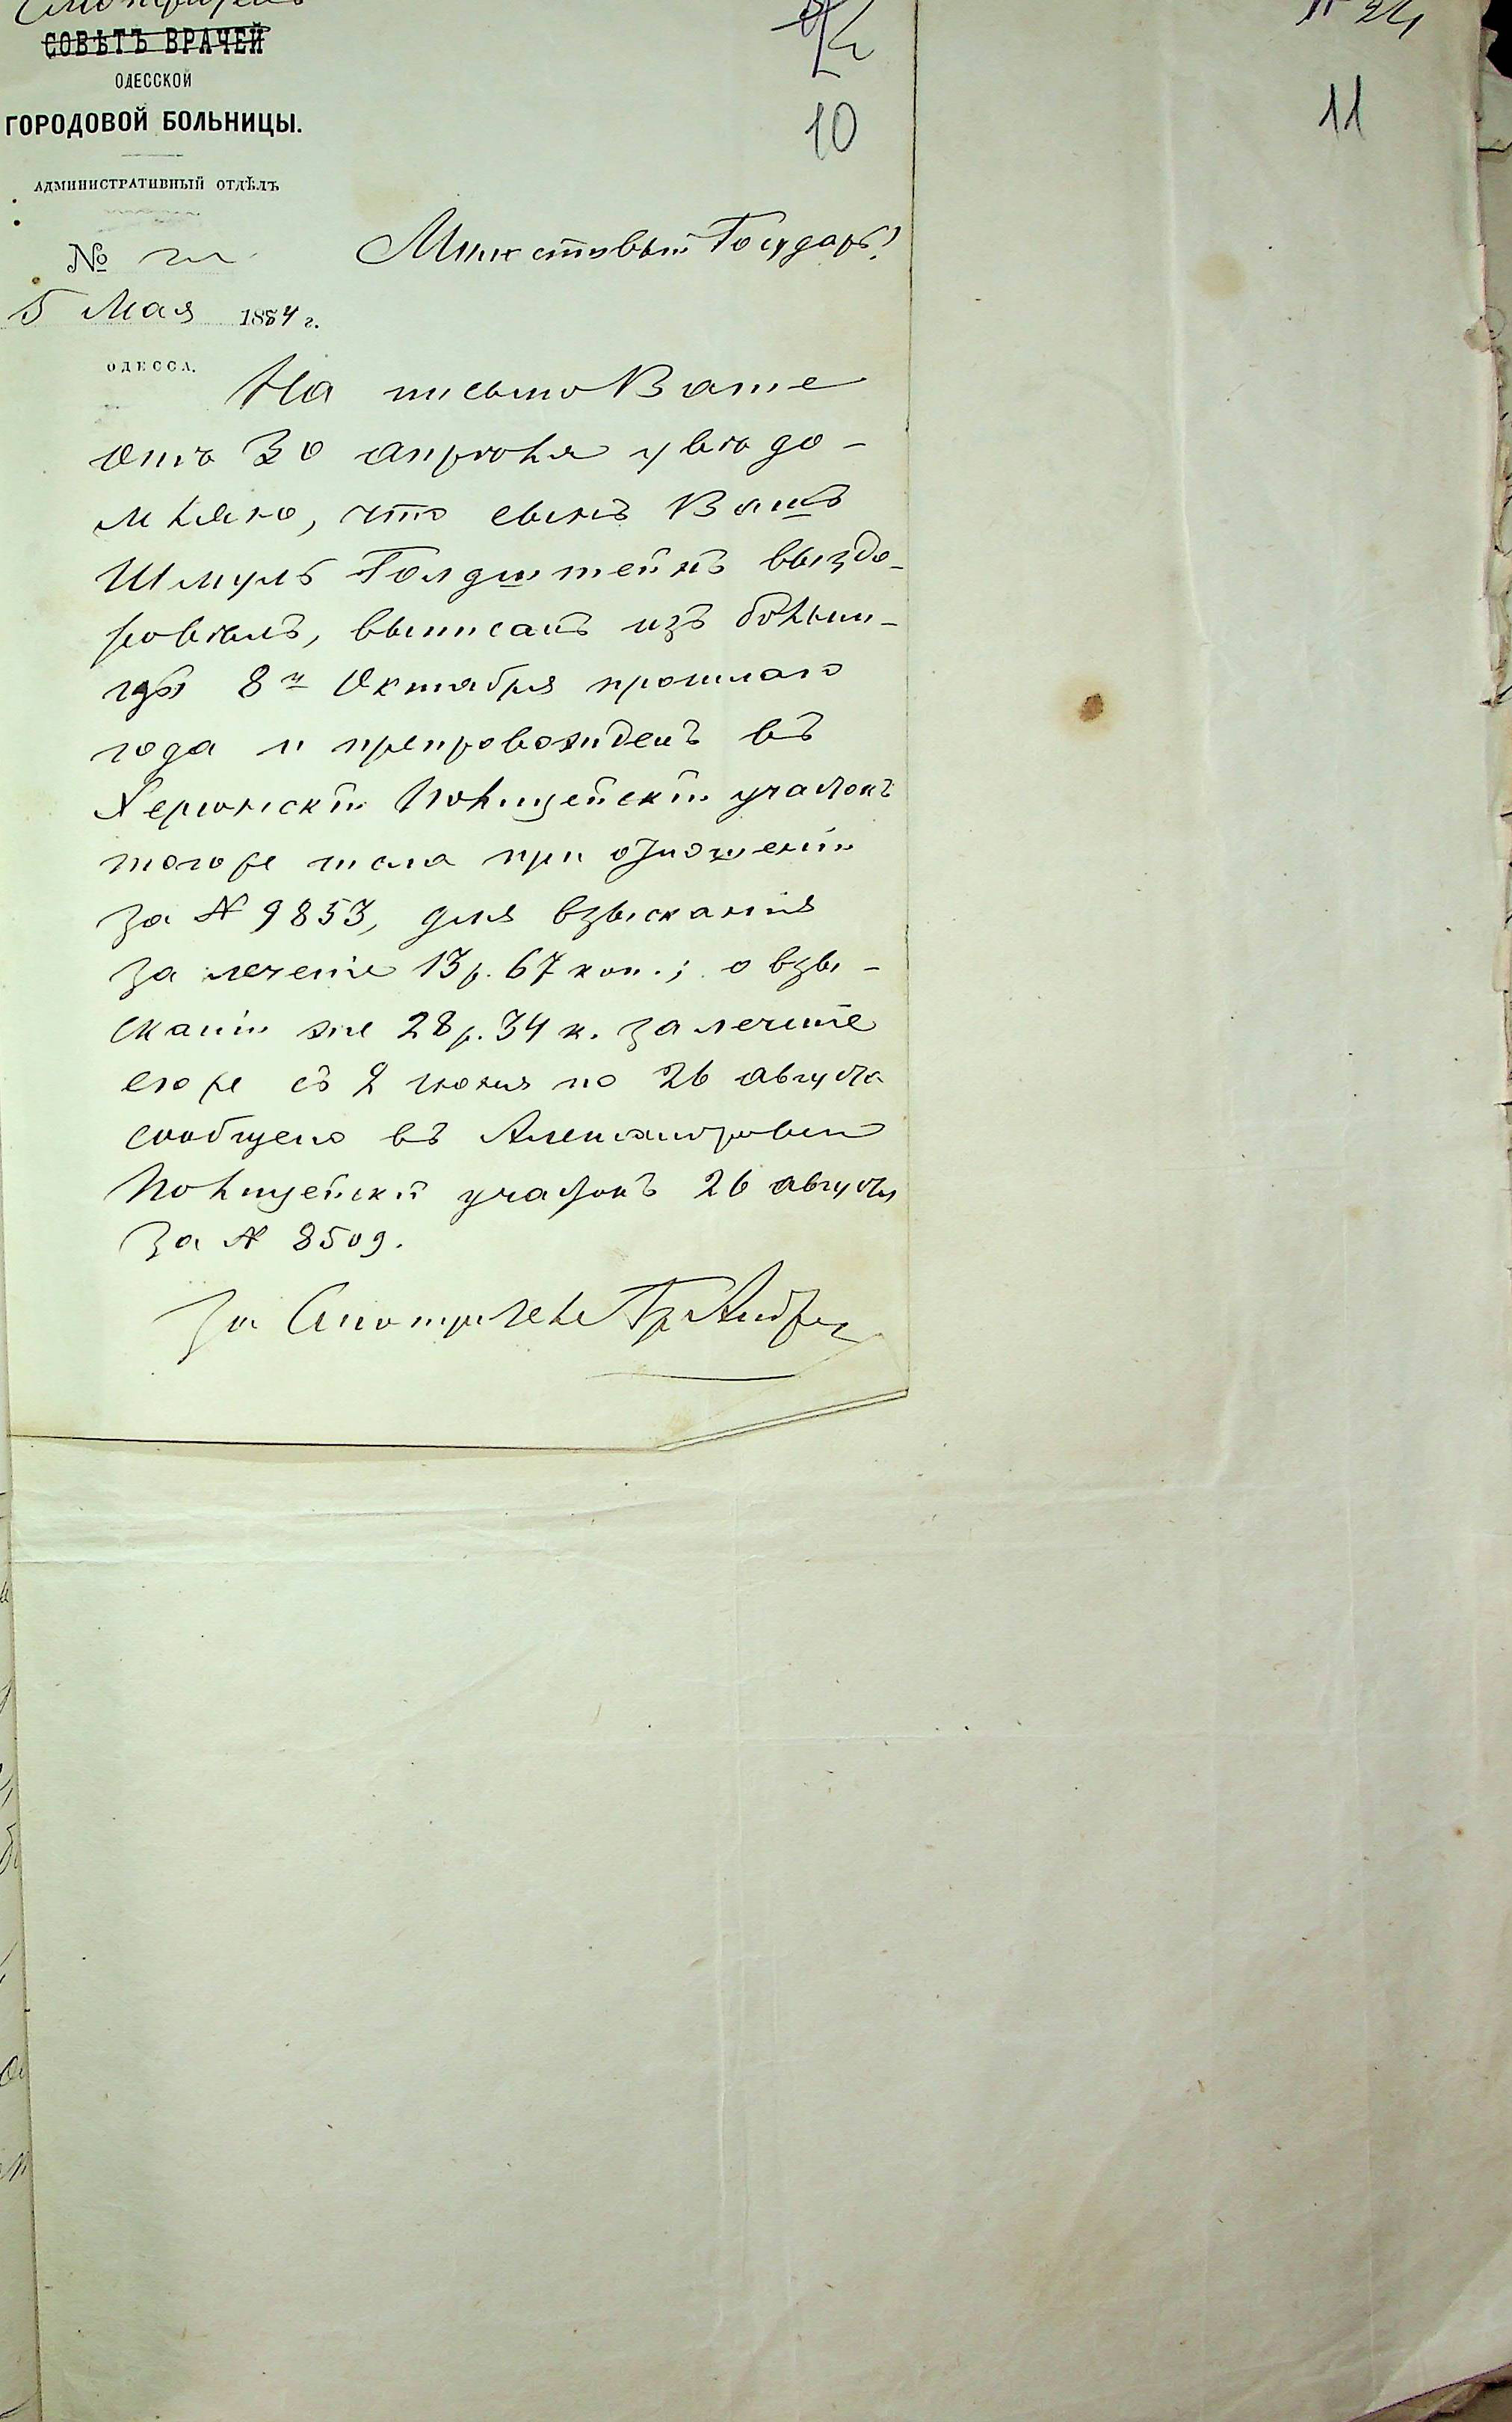 Смотритель
СОВѢТЪ ВРАЧЕЙ
ОДЕССКОЙ
ГОРОДОВОЙ БОЛЬНИЦЫ.
АДМИНИСТРАТИВНЫЙ ОТДѢЛЪ
№
5 Мая 1884 г.
ОДЕССА.
10
11
Милостивый Государь!
На письмо Ваше
отъ 30 апрѣля увѣдо-
мляю, что сынъ Вашъ
Шмуль Голдштейнъ выздо-
ровѣлъ, выписанъ изъ больни-
цы 8го Октября прошлаго
года и препровожденъ въ
Херсонскій Полицейскій участокъ
того же числа при отношеніи
за № 9853, для взысканія
за леченіе 13 р. 67 коп.; о взы-
сканіи же 28 р. 34 к. за леченіе
его же съ 2 Іюня по 26 августа
сообщено въ Александровскій
Полицейскій участокъ 26 августа
за № 8509.
За Смотрителя